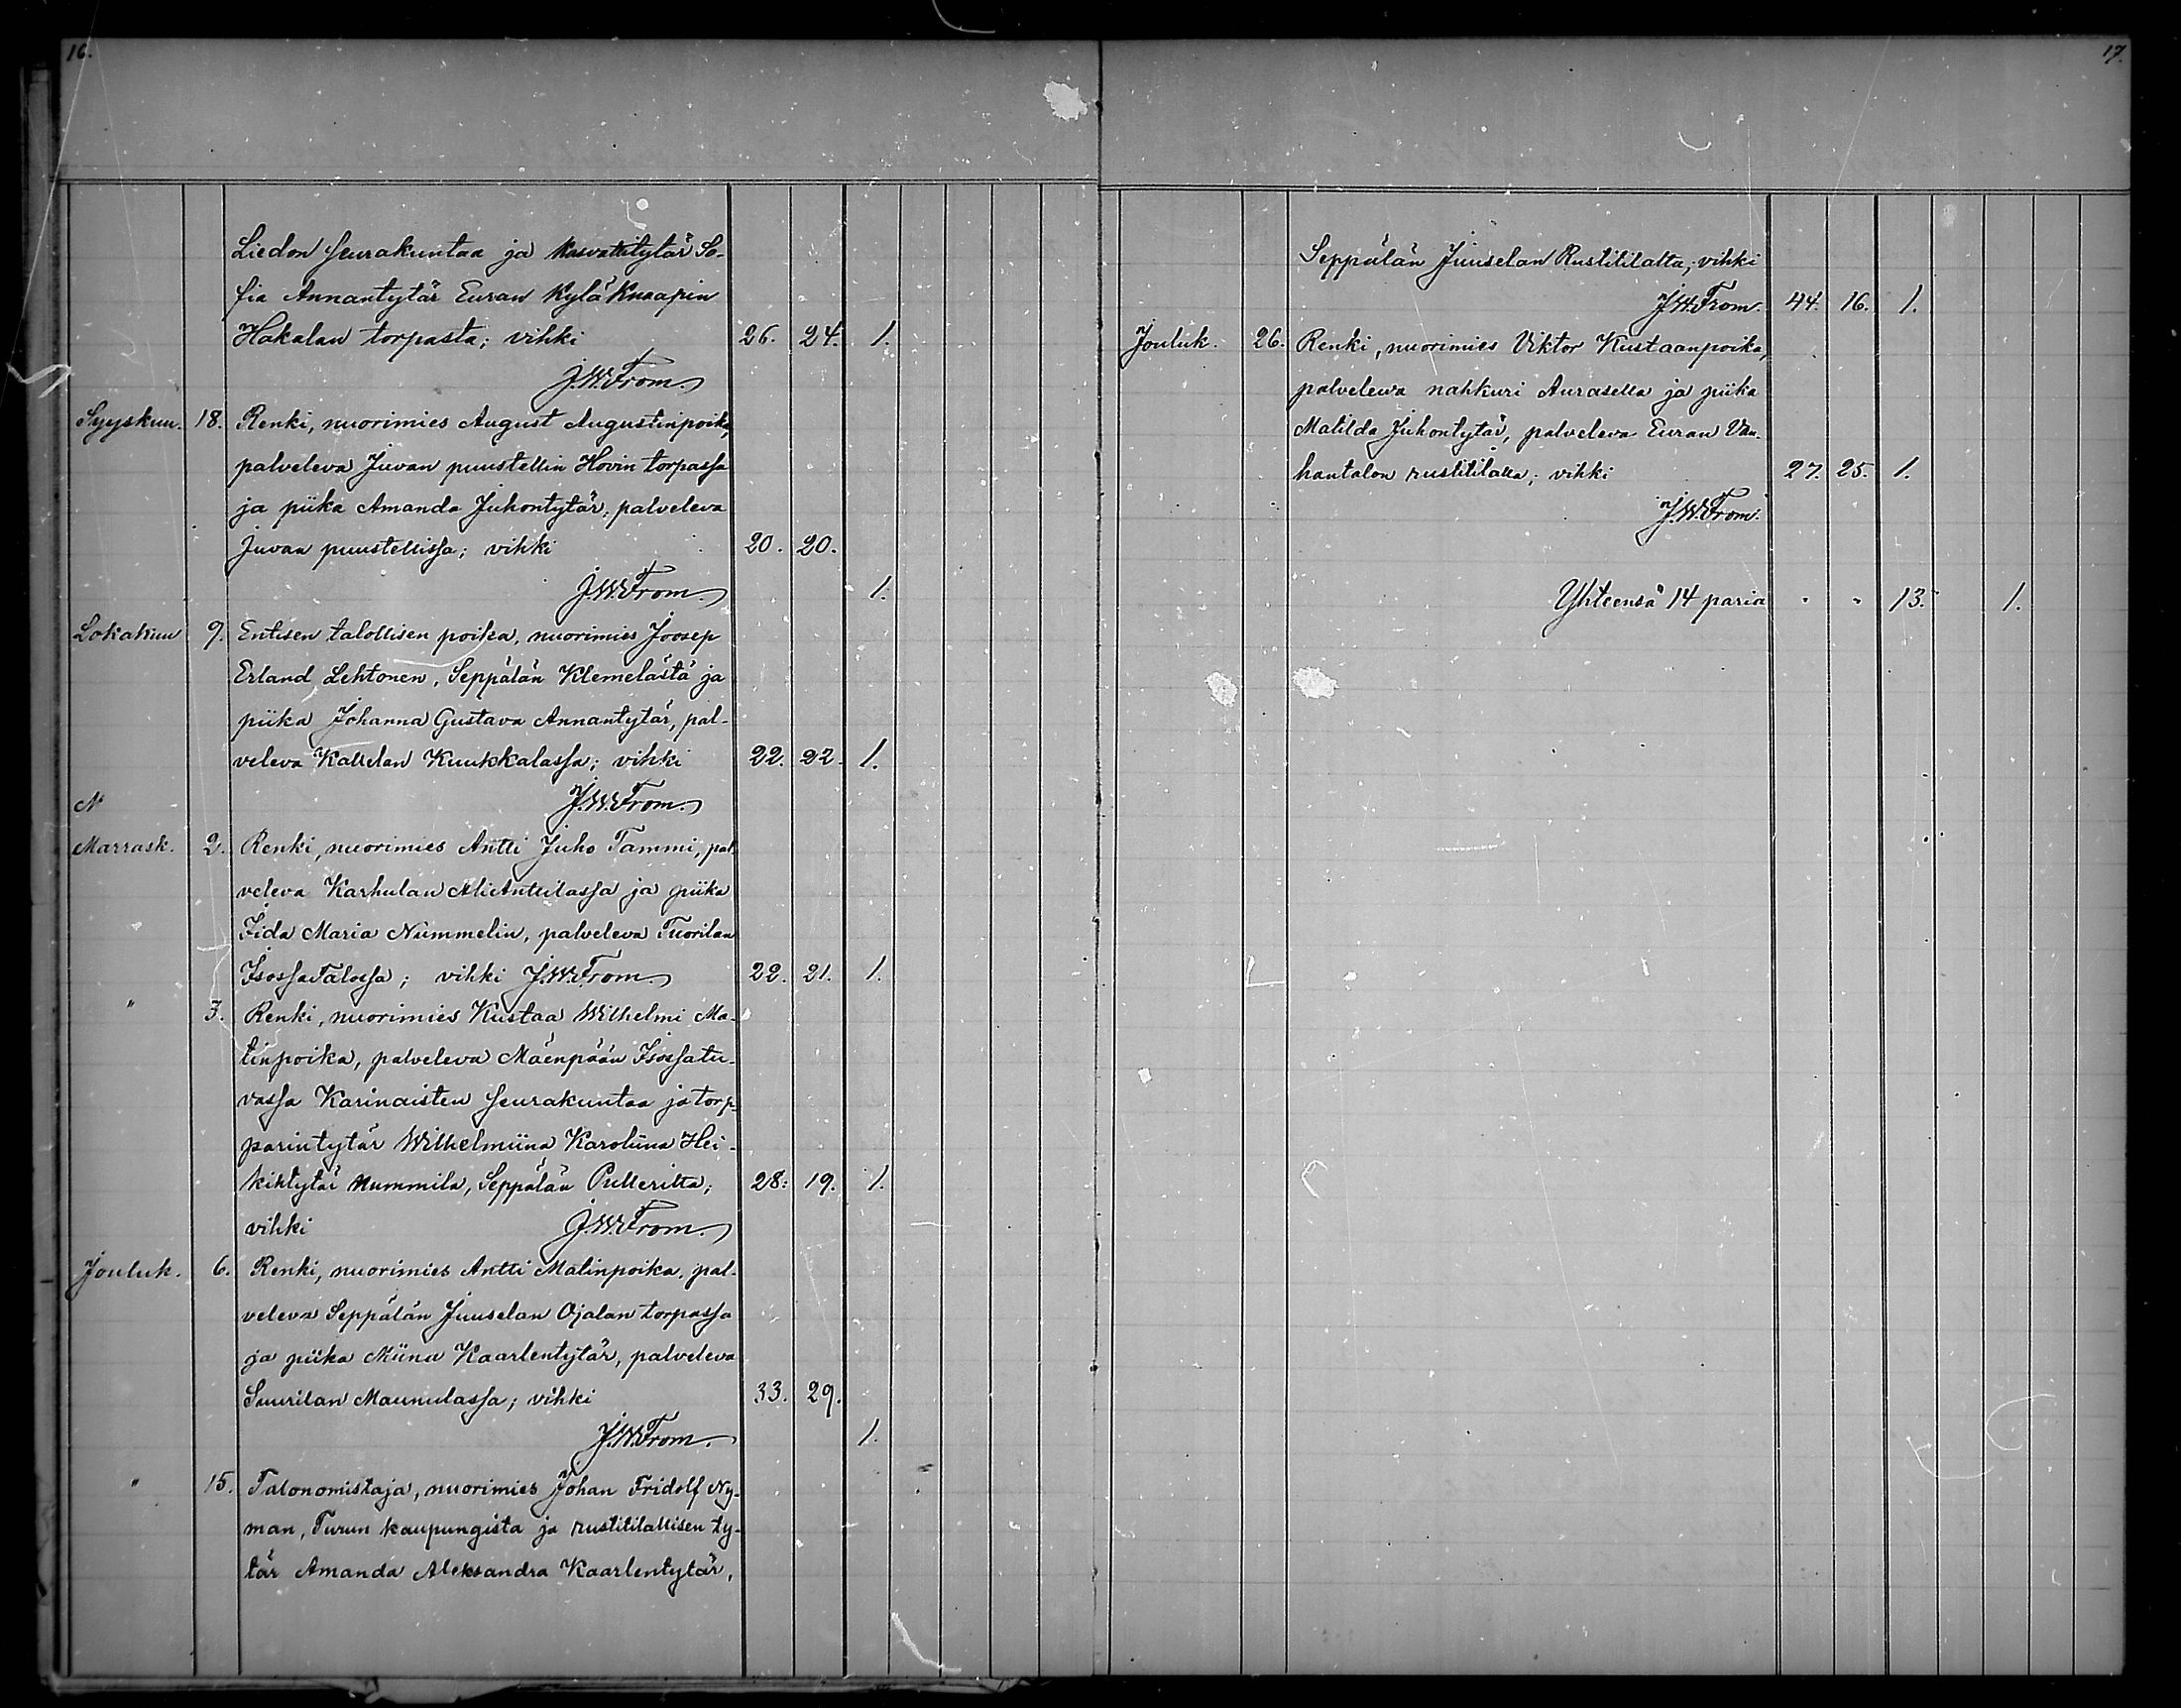 16.
Liedon seurakuntaa ja kasvattitytär So-
fia Annantytär Euran KyläKnaapin
Hakalan torpasta; vihki 26. 24. 1.
J.W.From.
Syyskuu. 18. Renki, nuorimies August Augustinpoika,
palveleva Juvan puustellin Hovin torpassa
ja piika Amanda Juhontytär, palveleva
Juvan puustellissa; vihki 20. 20.
J.W.From. 1.
Lokakuu 9. Entisen talollisen poika, nuorimies Joosep
Erland Lehtonen, Seppälän Klemelästä ja
piika Johanna Gustava Annantytär, pal-
veleva Kallelan Kuukkalassa; vihki 22. 22. 1.
N J.W.From.
Marrask. 2. Renki, nuorimies Antti Juho Tammi, pal-
veleva Karhulan AliAnttilassa ja piika
Iida Maria Nummelin, palveleva Tuorilan
IsossaTalossa; vihki J.W.From. 22. 21. 1.
" 3. Renki, nuorimies Kustaa Wilhelmi Ma-
tinpoika, palveleva Mäenpään Isossatu-
vassa Karinaisten seurakuntaa ja torp-
parintytär Wilhelmiina Karoliina Hei-
kintytär Nummila, Seppälän Pullerilta; 28. 19. 1.
vihki J.W.From.
Jouluk. 6. Renki, nuorimies Antti Matinpoika, pal-
veleva Seppälän Juuselan Ojalan torpassa
ja piika Miina Kaarlentytär, palveleva
Suurilan Maunulassa; vihki 33. 29.
J.W.From. 1.
" 15. Talonomistaja, nuorimies Johan Fridolf Ny-
man, Turun kaupungista ja rustitilallisen ty-
tär Amanda Aleksandra Kaarlentytär,
17.
Seppälän Juuselan Rustitilalta; vihki
J.W.From. 44. 16. 1.
Jouluk. 26. Renki, nuorimies Viktor Kustaanpoika,
palveleva nahkuri Aurasella ja piika
Matilda Juhontytär, palveleva Euran Van-
hantalon rustitilalla; vihki 27. 25. 1.
J.W.From.
Yhteensä 14 paria " " 13. 1.